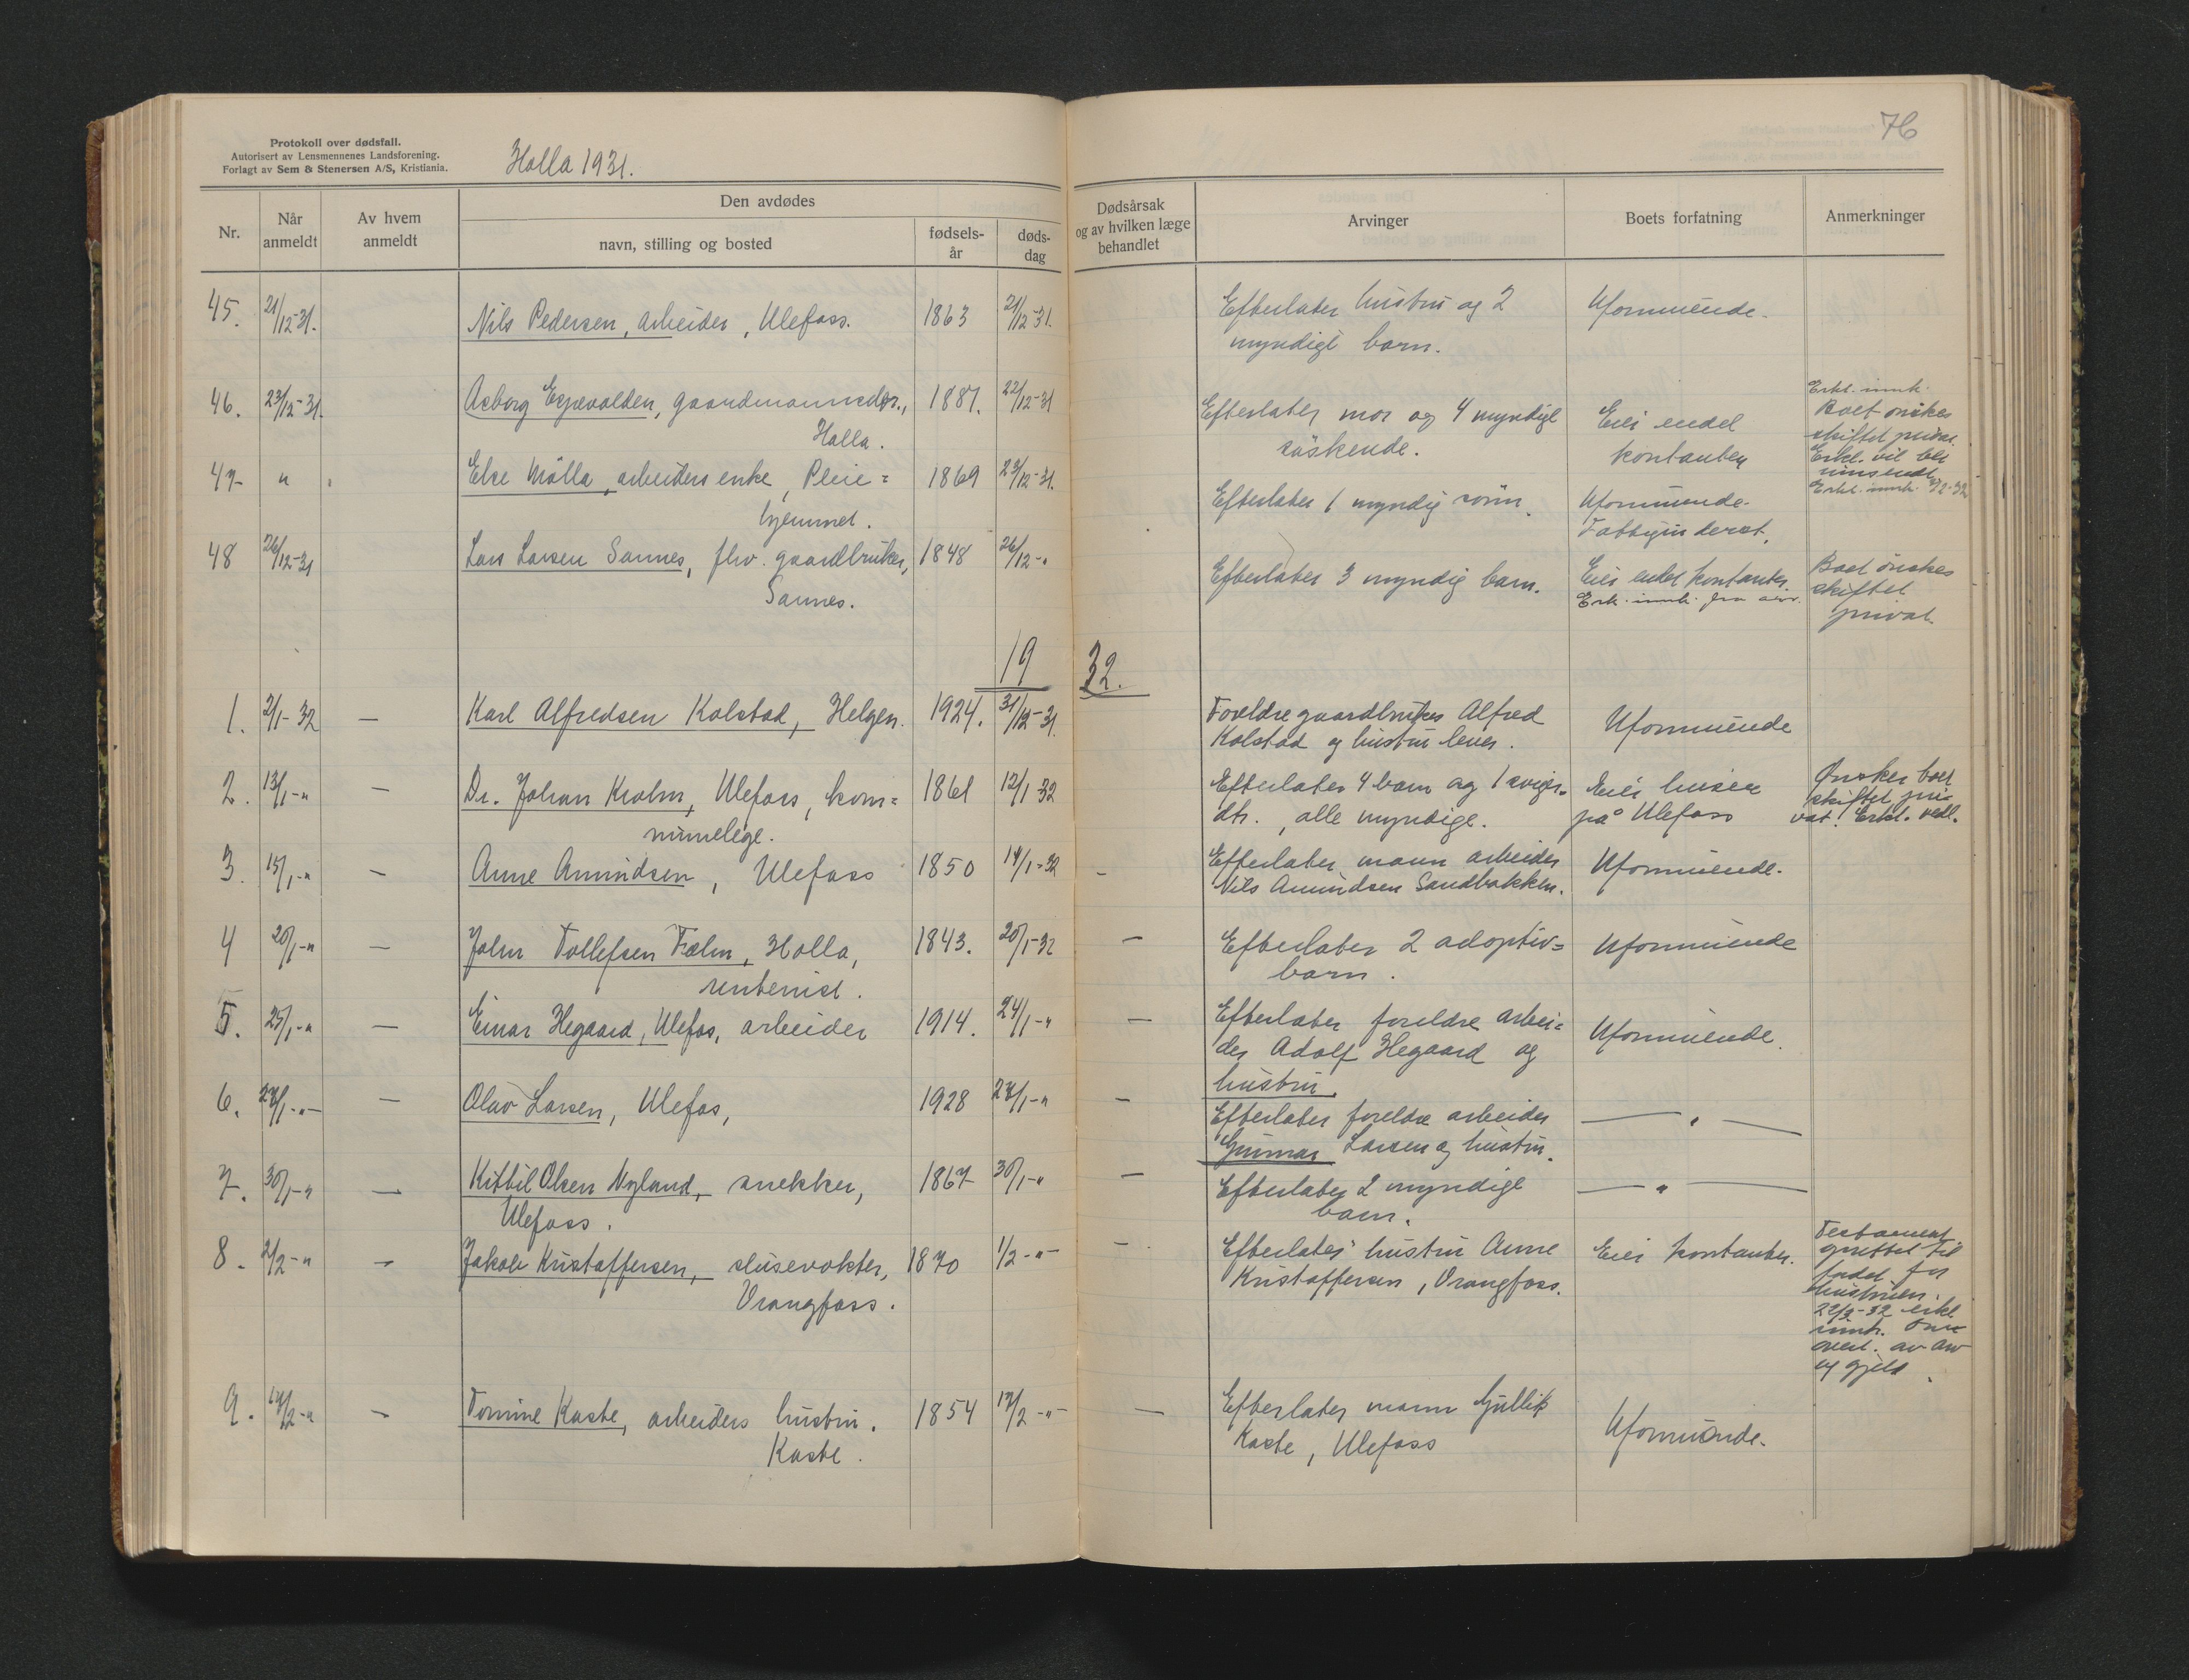 Protokoll over dødsfall.
Autorisert av Lensmennenes Landsforening.
Forlagt av Sem & Stenersen A/S, Kristiania.
Holla 1931.
76
Nr.
Når anmeldt
Av hvem anmeldt
Den avdødes
navn, stilling og bosted
fødsels-år
døds-dag
Dødsårsak og av hvilken læge behandlet
Arvinger
Boets forfatning
Anmerkninger
45. 21/12-31. Nils Pedersen, arbeider, Ulefoss. 1863 21/12-31. Efterlater hustru og 2 Uformuende.
myndige barn.
46. 23/12-31. Aaborg Espevolden, gaardmannsdgr., 1887. 22/12-31 Efterlater mor og 4 myndige Eier endel Erkl. innk. Boet ønskes
Holla. søskende. kontanter skiftet privat.
Erkl. vil bli
innsendt
47 " Else Mølla, arbeiders enke, Pleie= 1869 23/12-31. Efterlater 1 myndig sønn. Uformuende. Erkl. innk. 9/2-32
hjemmet. Fattigunderst.
48 26/12-31 Lars Larsen Sannes, fhv. gaardbruker, 1848 26/12-" Efterlater 3 myndig barn. Eier endel kontanter. Boet ønskes
Sannes. Erk. innk. fra arv. skiftet
privat.
19 32.
1. 2/1-32 — Karl Alfredsen Kolstad, Helgen. 1924. 31/12-31. Foreldre gaardbruker Alfred Uformuende
Kolstad og hustru lever.
2. 13/1-" — Dr. Johan Krohn, Ulefoss, kom= 1861 12/1-32 Efterlater 4 barn og 1 sviger= Eier huset Ønsker boet
munelege. dtr., alle myndige. på Ulefoss skiftet pri-
vat. Erkl. vedl.
3. 15/1-" — Anne Amundsen, Ulefoss 1850 14/1-32 - Efterlater mann arbeider Uformuende.
Nils Amundsen Sandbakken.
4 20/1-" — John Tollefsen Fæhn, Holla, 1843. 20/1-32 — Efterlater 2 adoptiv= Uformuende
rentenist. barn.
5. 25/1-" — Einar Hegaard, Ulefos, arbeider 1914. 24/1-" — Efterlater foreldre arbei= Uformuende.
der Adolf Hegaard og
hustru.
6. 27/1-"- — Olav Larsen, Ulefos, 1928 27/1-" — Efterlater foreldre arbeider — " —
Gunnar Larsen og hustru.
7. 30/1-" — Kittil Olsen Nyland, snekker, 1867 30/1-" — Efterlater 2 myndige — " —
Ulefoss. barn.
8. 2/2-" — Jakob Kristoffersen, slusevokter, 1870 1/2-"- — Efterlater hustru Anne Eier kontanter. Testament
Vrangfoss. Kristoffersen, Vrangfoss. oprettet til
fordel for
hustruen.
22/2-32 erkl.
innk. om
overt. av arv
og gjeld.
9. 17/2-" — Tomine Kaste, arbeiders hustru. 1854 17/2-"- — Efterlater mann Gullik Uformuende.
Kaste. Kaste, Ulefoss